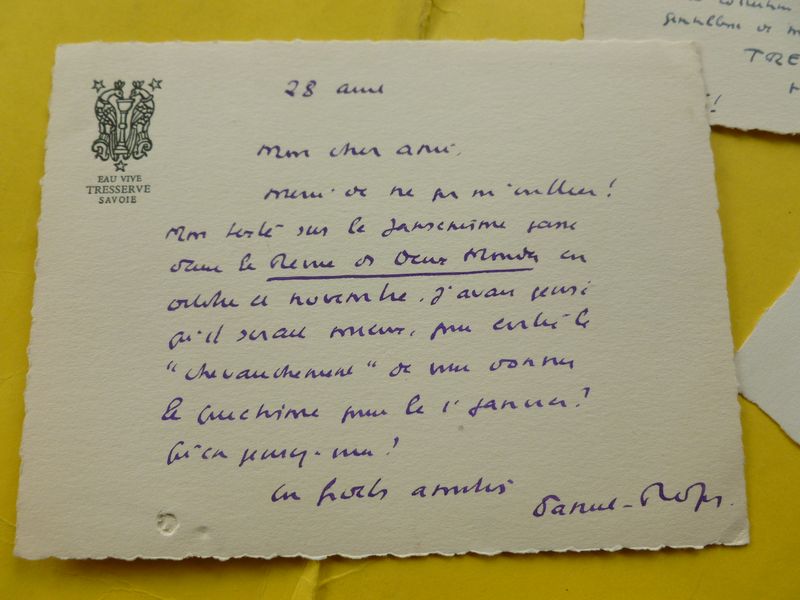 EAU VIVE
TRESSERVE
SAVOIE
28 août
Mon cher ami,
merci de ne pas m'oublier!
Mon texte sur le Jansénisme passe
dans le Revue des Deux Mondes en
octobre et novembre. J'avais pensé
qu'il serait mieux, pour éviter le
"chevauchement" de vous donner
le pour le 1er Janvier?
Qu'en pensez-vous?
en fidèle amitié
Daniel-Rops.
TRE
!